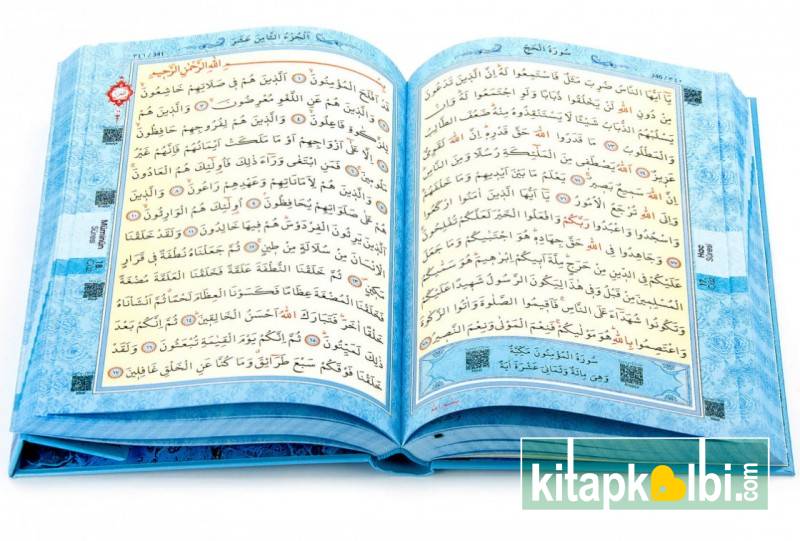 سُورَةُ الْحَجِّ
340 / ٣٤٠
يَٓا اَيُّهَا النَّاسُ ضُرِبَ مَثَلٌ فَاسْتَمِعُوا لَهُ اِنَّ الَّذ۪ينَ تَدْعُونَ
مِنْ دُونِ اللّٰهِ لَنْ يَخْلُقُوا ذُبَابًا وَلَوِ اجْتَمَعُوا لَهُ وَاِنْ
يَسْلُبْهُمُ الذُّبَابُ شَيْـًٔا لَا يَسْتَنْقِذُوهُ مِنْهُ ضَعُفَ الطَّالِبُ
وَالْمَطْلُوبُ ٧٣ مَا قَدَرُوا اللّٰهَ حَقَّ قَدْرِه۪ اِنَّ اللّٰهَ لَقَوِيٌّ
عَز۪يزٌ ٧٤ اَللّٰهُ يَصْطَف۪ي مِنَ الْمَلٰٓئِكَةِ رُسُلًا وَمِنَ النَّاسِ
اِنَّ اللّٰهَ سَم۪يعٌ بَص۪يرٌ ٧٥ يَعْلَمُ مَا بَيْنَ اَيْد۪يهِمْ وَمَا خَلْفَهُمْ
وَاِلَى اللّٰهِ تُرْجَعُ الْاُمُورُ ٧٦ يَٓا اَيُّهَا الَّذ۪ينَ اٰمَنُوا ارْكَعُوا
وَاسْجُدُوا وَاعْبُدُوا رَبَّكُمْ وَافْعَلُوا الْخَيْرَ لَعَلَّكُمْ تُفْلِحُونَ
٧٧ وَجَاهِدُوا فِي اللّٰهِ حَقَّ جِهَادِه۪ هُوَ اجْتَبٰيكُمْ وَمَا جَعَلَ
عَلَيْكُمْ فِي الدّ۪ينِ مِنْ حَرَجٍ مِلَّةَ اَب۪يكُمْ اِبْرٰه۪يمَ هُوَ سَمّٰيكُمُ
الْمُسْلِم۪ينَ مِنْ قَبْلُ وَف۪ي هٰذَا لِيَكُونَ الرَّسُولُ شَه۪يدًا عَلَيْكُمْ
وَتَكُونُوا شُهَدَٓاءَ عَلَى النَّاسِ فَاَق۪يمُوا الصَّلٰوةَ وَاٰتُوا الزَّكٰوةَ
وَاعْتَصِمُوا بِاللّٰهِ هُوَ مَوْلٰيكُمْ فَنِعْمَ الْمَوْلٰى وَنِعْمَ النَّص۪يرُ ٧٨
سُورَةُ الْمُؤْمِنُونَ مَكِّيَّةٌ
وَهِيَ مِائَةٌ وَثَمَانِي عَشْرَةَ اٰيَةً
Hac
Sûresi
17
اَلْجُزْءُ الثَّامِنَ عَشَرَ
341 / ٣٤١
بِسْمِ اللّٰهِ الرَّحْمٰنِ الرَّح۪يمِ
قَدْ اَفْلَحَ الْمُؤْمِنُونَ ١ اَلَّذ۪ينَ هُمْ ف۪ي صَلَاتِهِمْ خَاشِعُونَ
٢ وَالَّذ۪ينَ هُمْ عَنِ اللَّغْوِ مُعْرِضُونَ ٣ وَالَّذ۪ينَ هُمْ
لِلزَّكٰوةِ فَاعِلُونَ ٤ وَالَّذ۪ينَ هُمْ لِفُرُوجِهِمْ حَافِظُونَ
٥ اِلَّا عَلٰٓى اَزْوَاجِهِمْ اَوْ مَا مَلَكَتْ اَيْمَانُهُمْ فَاِنَّهُمْ غَيْرُ
مَلُوم۪ينَ ٦ فَمَنِ ابْتَغٰى وَرَٓاءَ ذٰلِكَ فَاُو۬لٰٓئِكَ هُمُ الْعَادُونَ
٧ وَالَّذ۪ينَ هُمْ لِاَمَانَاتِهِمْ وَعَهْدِهِمْ رَاعُونَ ٨ وَالَّذ۪ينَ
هُمْ عَلٰى صَلَوَاتِهِمْ يُحَافِظُونَ ٩ اُو۬لٰٓئِكَ هُمُ الْوَارِثُونَ ١٠
اَلَّذ۪ينَ يَرِثُونَ الْفِرْدَوْسَ هُمْ ف۪يهَا خَالِدُونَ ١١ وَلَقَدْ خَلَقْنَا
الْاِنْسَانَ مِنْ سُلَالَةٍ مِنْ ط۪ينٍ ١٢ ثُمَّ جَعَلْنَاهُ نُطْفَةً ف۪ي قَرَارٍ
مَك۪ينٍ ١٣ ثُمَّ خَلَقْنَا النُّطْفَةَ عَلَقَةً فَخَلَقْنَا الْعَلَقَةَ مُضْغَةً
فَخَلَقْنَا الْمُضْغَةَ عِظَامًا فَكَسَوْنَا الْعِظَامَ لَحْمًا ثُمَّ اَنْشَاْنَاهُ
خَلْقًا اٰخَرَ فَتَبَارَكَ اللّٰهُ اَحْسَنُ الْخَالِق۪ينَ ١٤ ثُمَّ اِنَّكُمْ بَعْدَ
ذٰلِكَ لَمَيِّتُونَ ١٥ ثُمَّ اِنَّكُمْ يَوْمَ الْقِيٰمَةِ تُبْعَثُونَ ١٦ وَلَقَدْ
خَلَقْنَا فَوْقَكُمْ سَبْعَ طَرَٓائِقَ وَمَا كُنَّا عَنِ الْخَلْقِ غَافِل۪ينَ ١٧
Müminûn
Sûresi
18
kitapkalbi.com